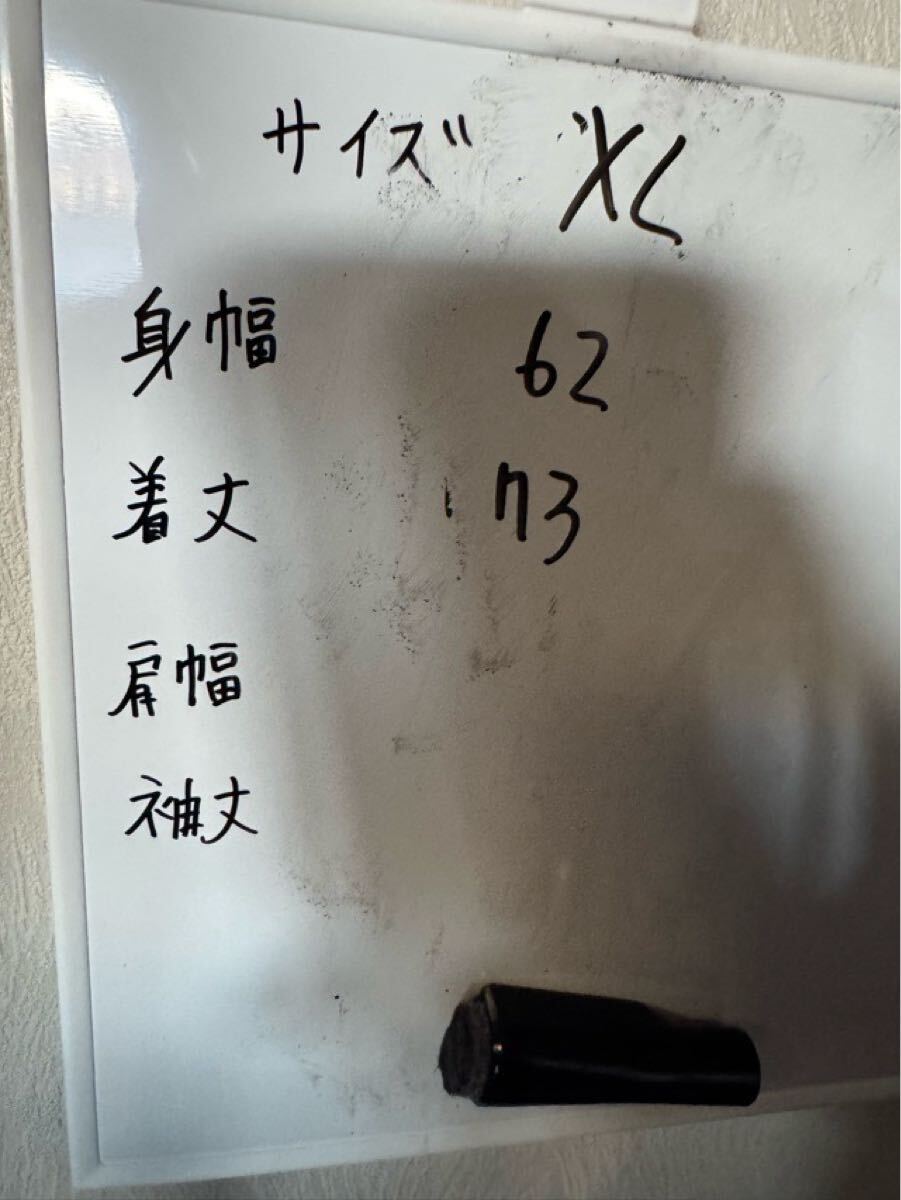 サイズ XL
身幅 62
着丈 73
肩幅
袖丈